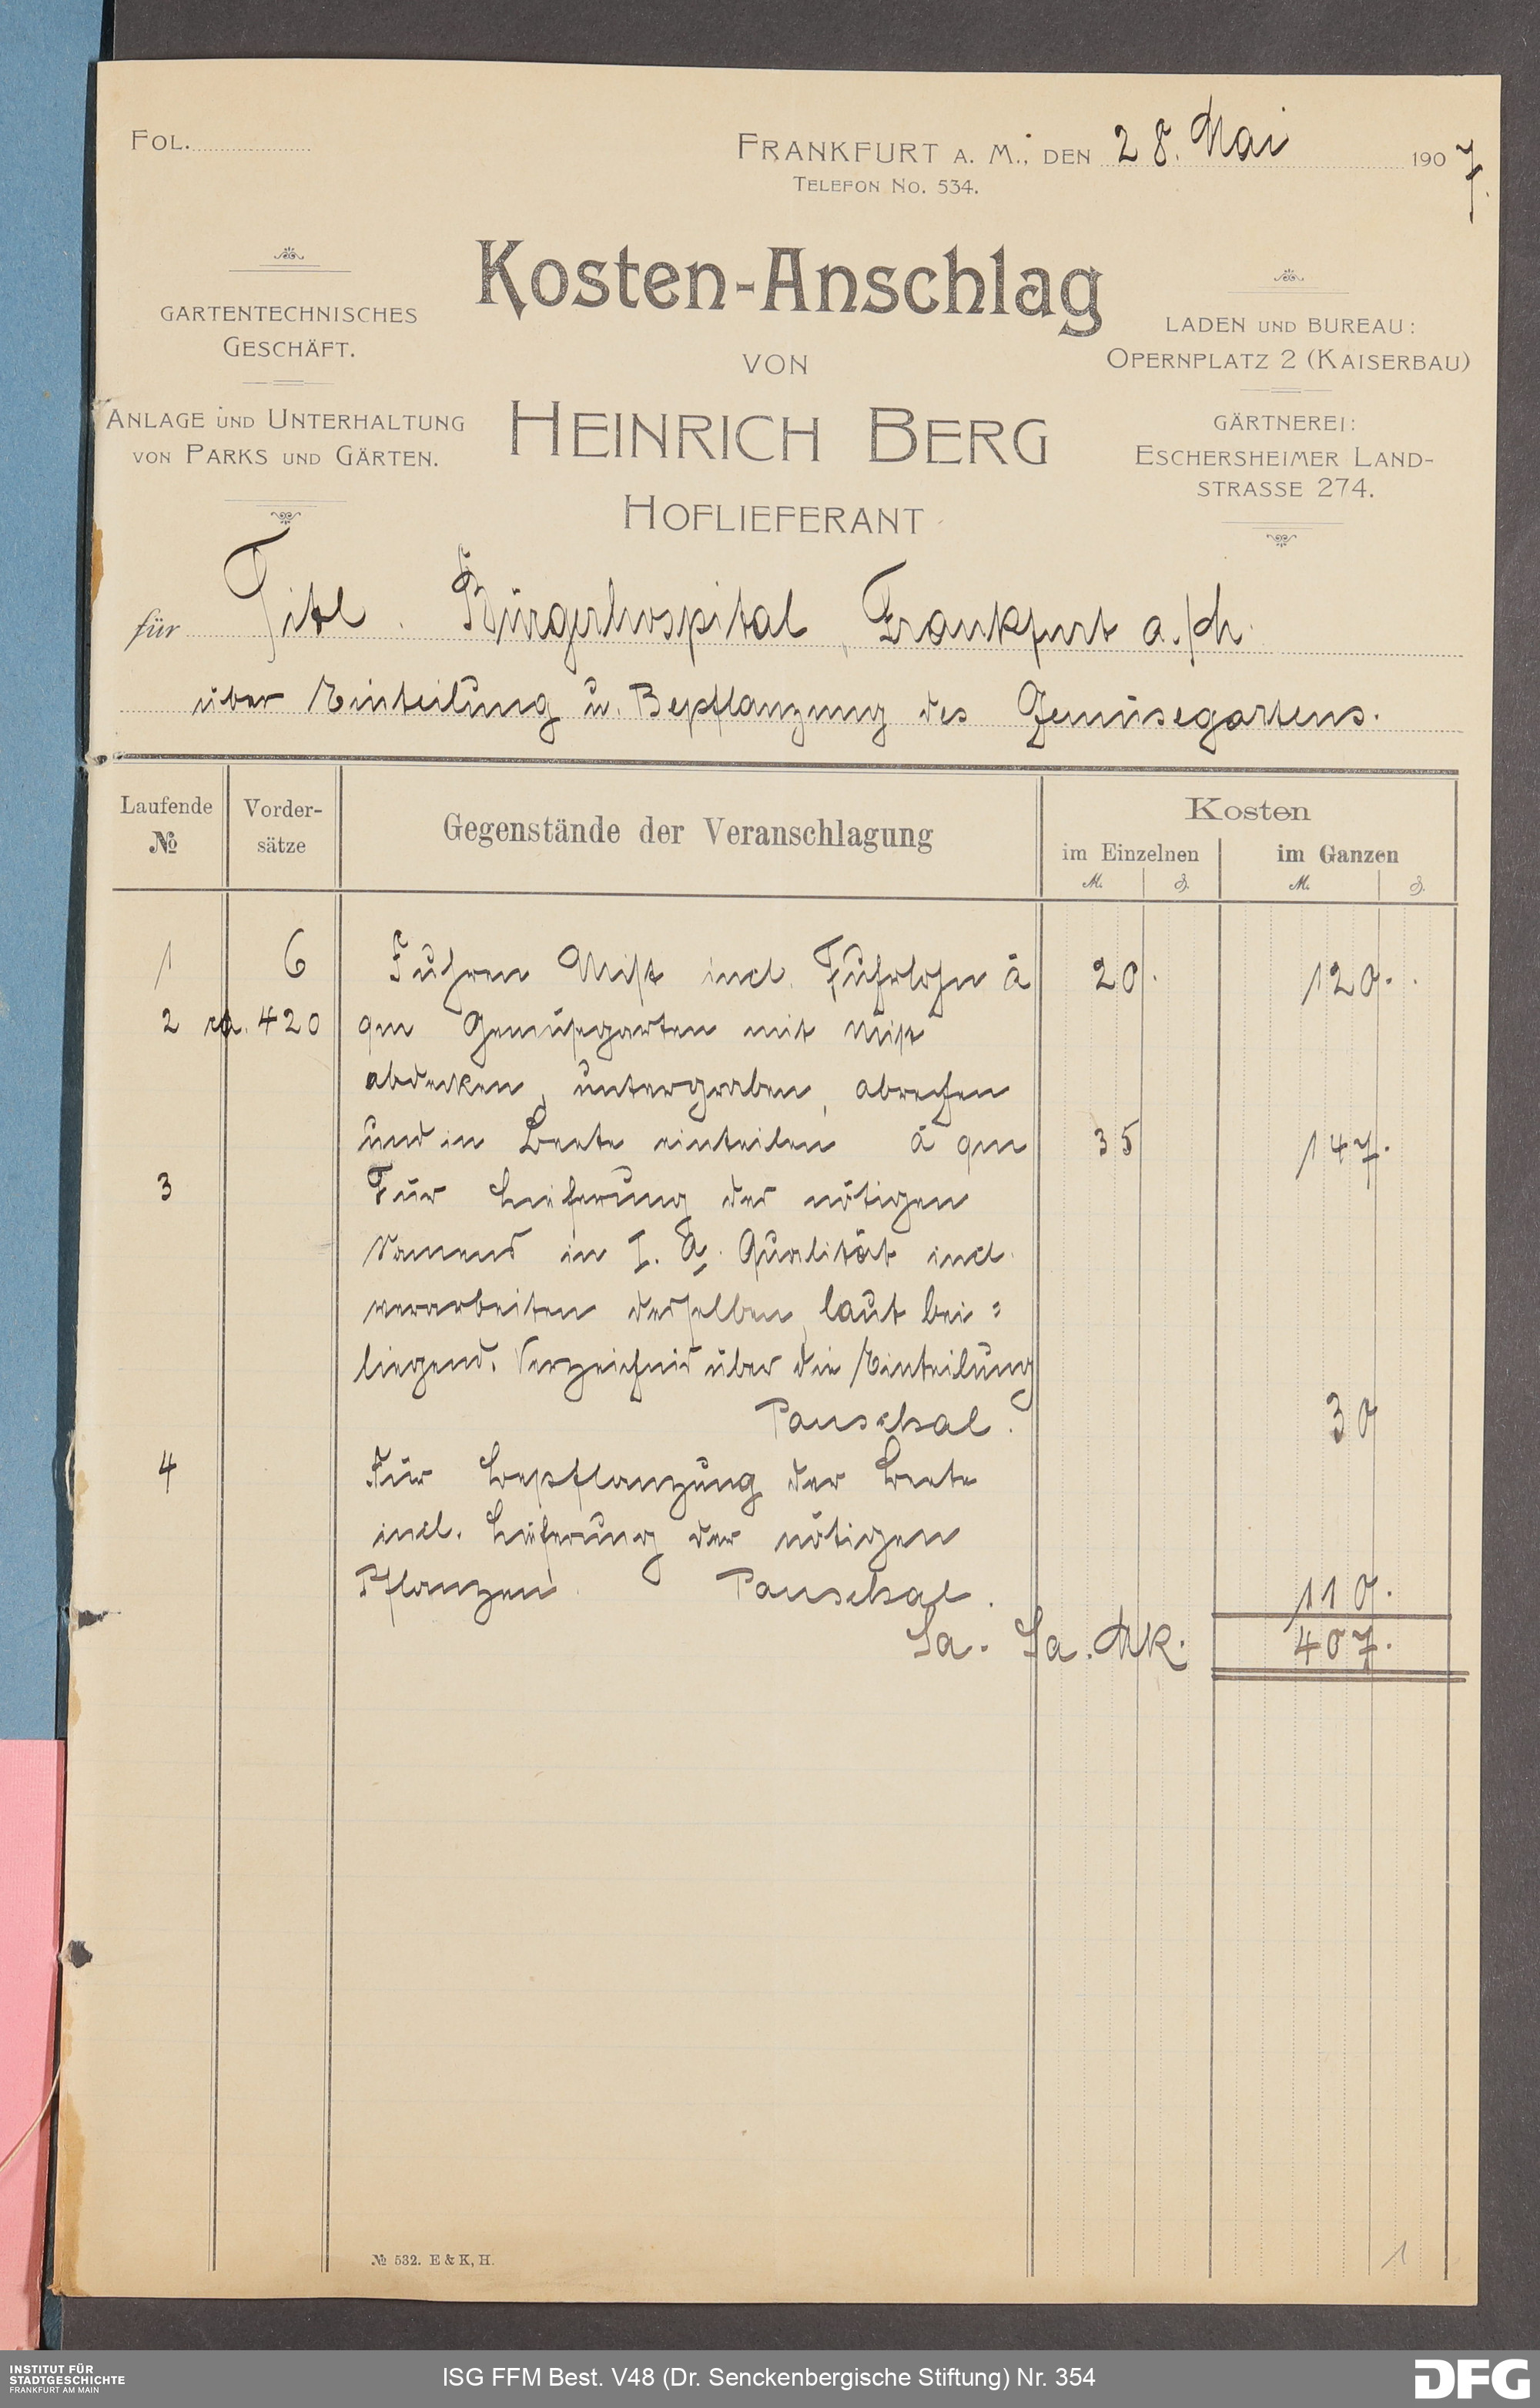 FOL.
FRANKFURT A. M., DEN 28. Mai 1907.
TELEFON NO. 534.
Kosten-Anschlag
GARTENTECHNISCHES
GESCHÄFT.
ANLAGE UND UNTERHALTUNG
VON PARKS UND GÄRTEN.
VON
HEINRICH BERG
HOFLIEFERANT
LADEN UND BUREAU:
OPERNPLATZ 2 (KAISERBAU)
GÄRTNEREI:
ESCHERSHEIMER LAND-
STRASSE 274.
für Titl. Bürgerhospital, Frankfurt a./M.
über Einteilung u. Bepflanzung des Gemüsegartens.
Laufende № Vorder-sätze Gegenstände der Veranschlagung Kosten
im Einzelnen im Ganzen
M. ₰. M. ₰.
1 6 Fuhren Mist incl. Fuhrlohn à 20. 120.
2 ca. 420 qm Gemüsegarten mit Mist
abdecken, untergraben, abrechen
und in Beete einteilen à qm 35 147.
3 Für Lieferung der nötigen
Samens in I. a. Qualität incl.
verarbeiten desselben, laut bei=
liegend. Verzeichnis über die Einteilung
Pauschal. 30
4 Für Bepflanzung der Beete
incl. Lieferung der nötigen
Pflanzen. Pauschal. 110.
Sa. Sa. Mk. 407.
№ 532. E & K, H.
1
INSTITUT FÜR
STADTGESCHICHTE
FRANKFURT AM MAIN
ISG FFM Best. V48 (Dr. Senckenbergische Stiftung) Nr. 354
DFG